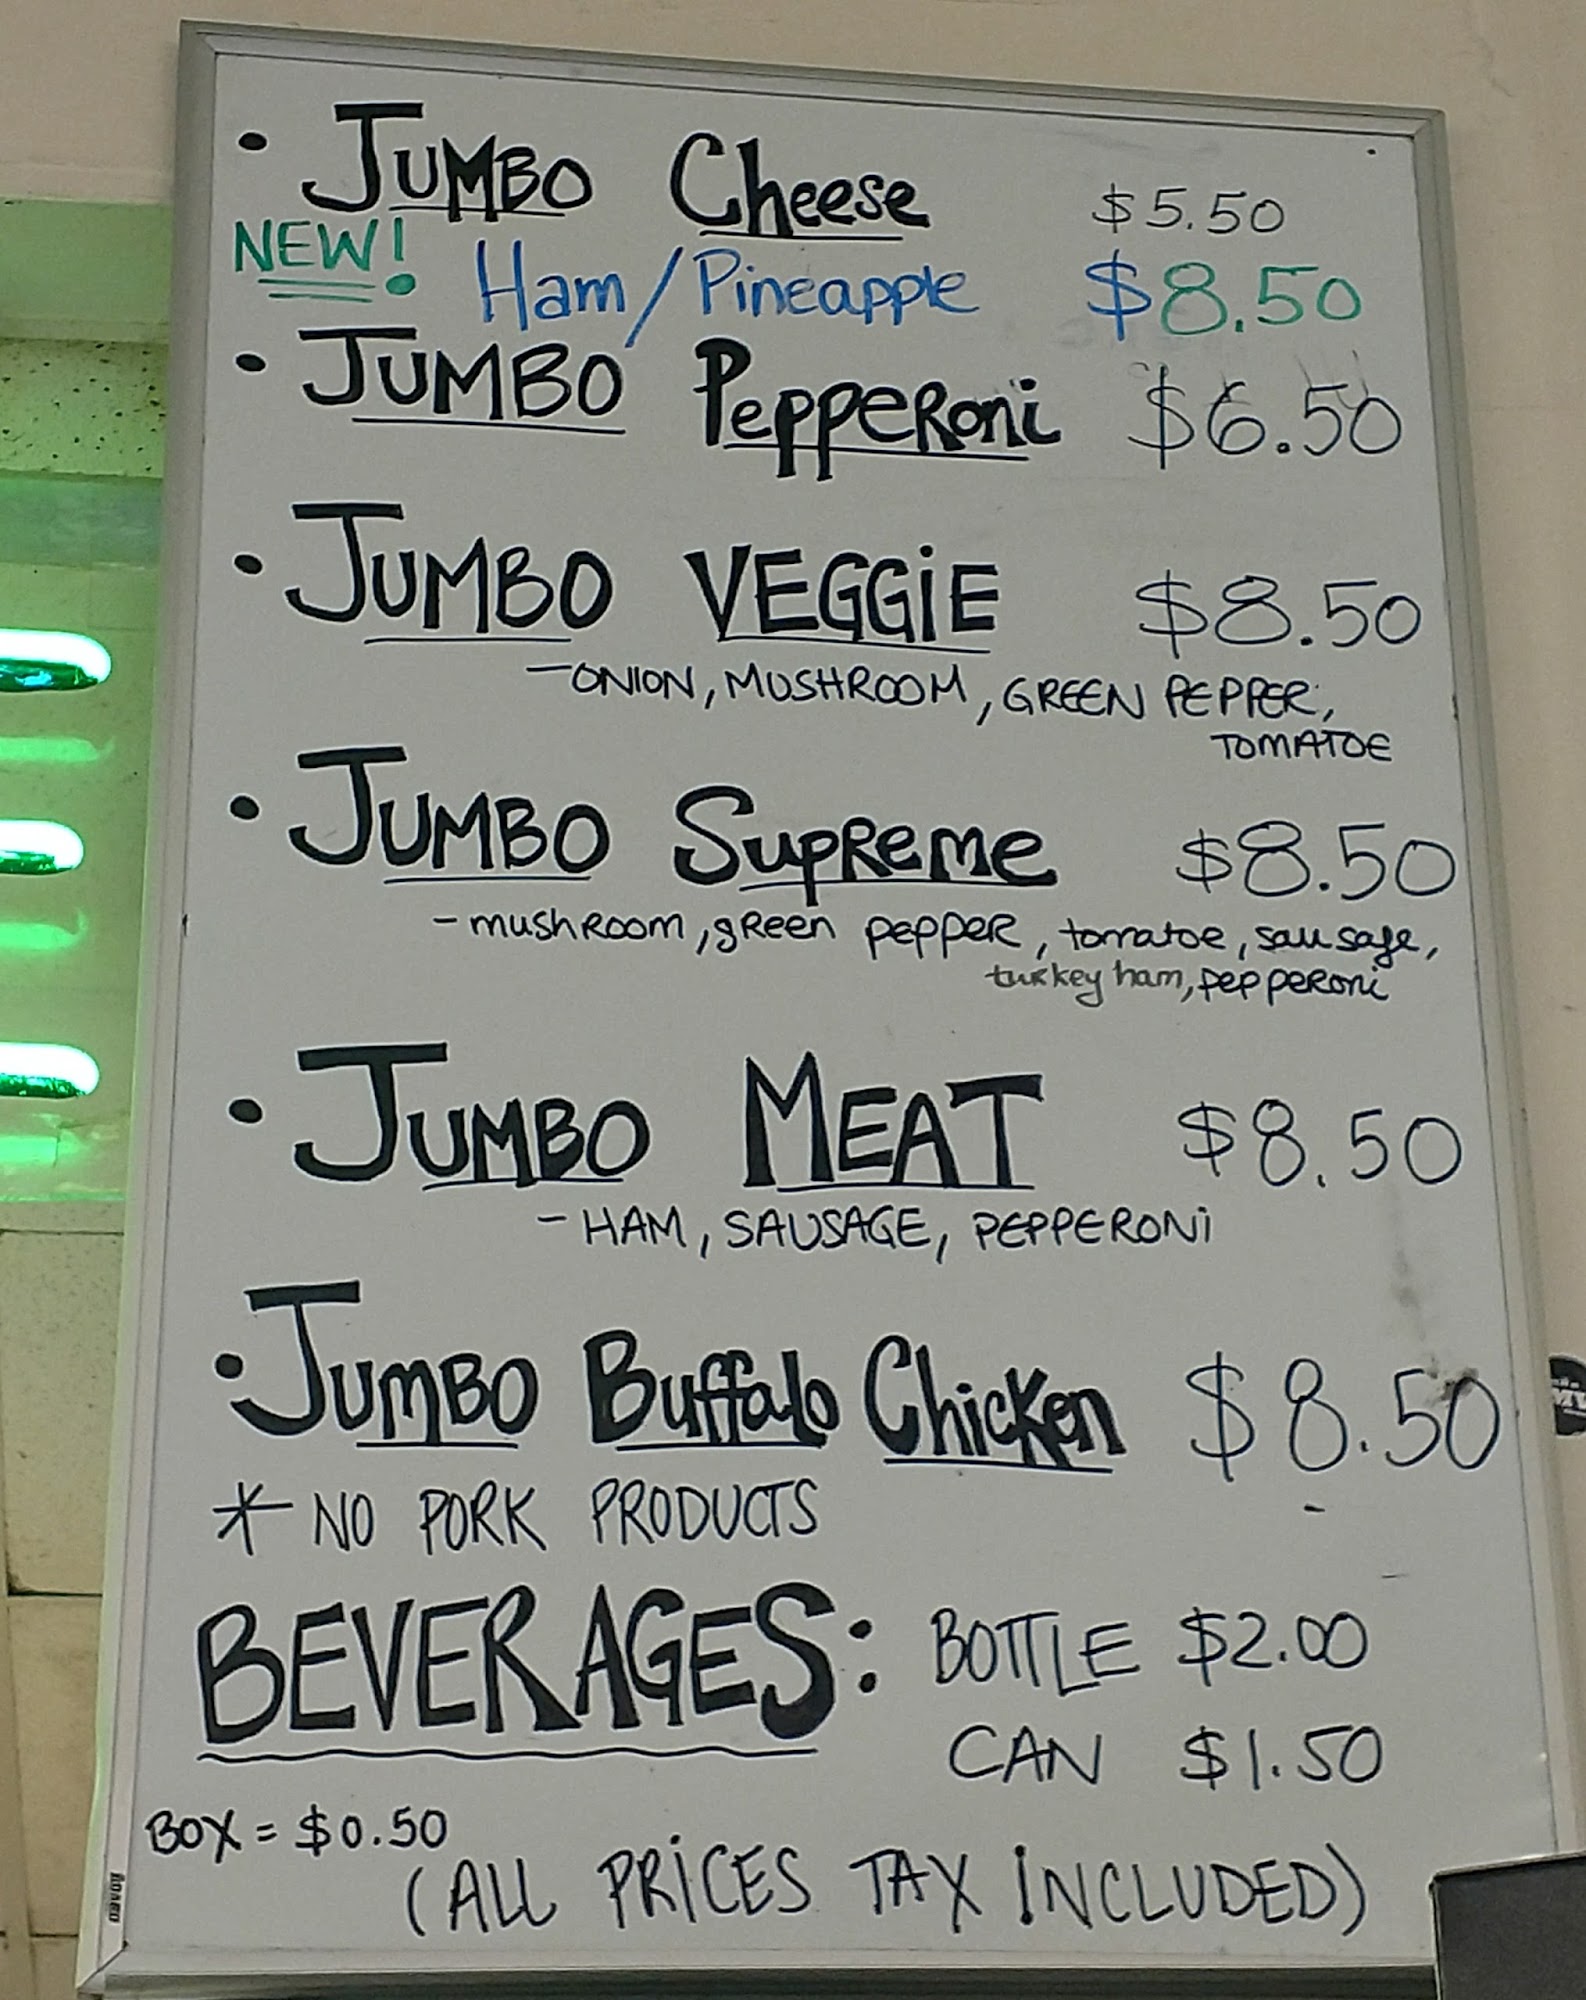 • JUMBO Cheese $5.50
NEW! Ham/Pineapple $8.50
• JUMBO PeppeRoni $6.50
• JUMBO VEGGiE $8.50
- ONION, MUSHROOM, GREEN PEPPER,
TOMATOE
• JUMBO SupReme $8.50
- mushRoom, gReen peppeR, tomatoe, sausage,
turkey ham, peppeRoni
• JUMBO MEAT $8.50
- HAM, SAUSAGE, PEPPERONi
• JumBO Buffalo Chicken $8.50
* NO PORK PRODUCTS
BEVERAGES: BOTTLE $2.00
CAN $1.50
BOX = $0.50
(ALL PRiCES TAX iNCLUDED)